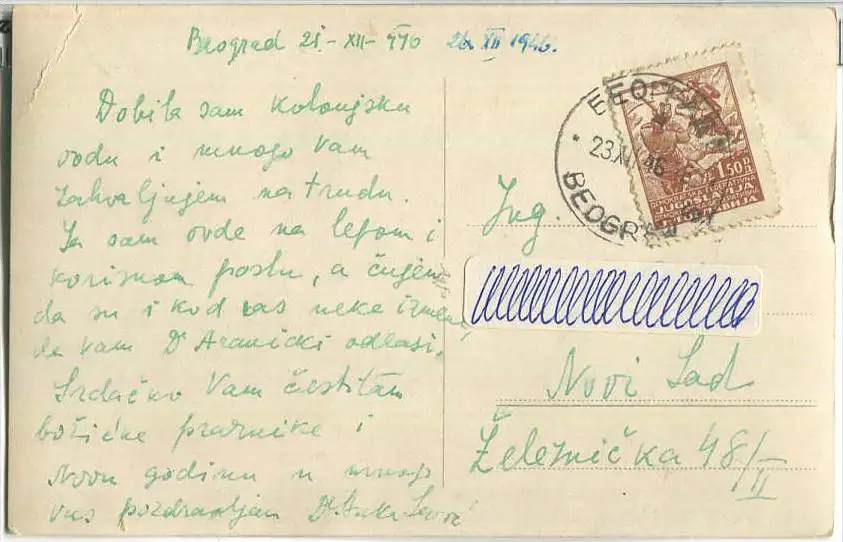 Beograd 21-XII-946 26 XII 1946.
Dobila sam kolonjsku
vodu i mnogo Vam
zahvaljujem na trudu.
Ja sam ovde na lepom i
korisnom poslu, a čujem
da su i kod vas neke izmene,
da vam Dr odlazi.
Srdačno Vam čestitam
božićne praznike i
Novu godinu u mnogo
vas pozdravljam Dr
BEOGRAD
23.XII.46
1.50 D
DEMOKRATSKA FEDERATIVNA
JUGOSLAVIJA
Ing.
Novi Sad
Železnička 48/II